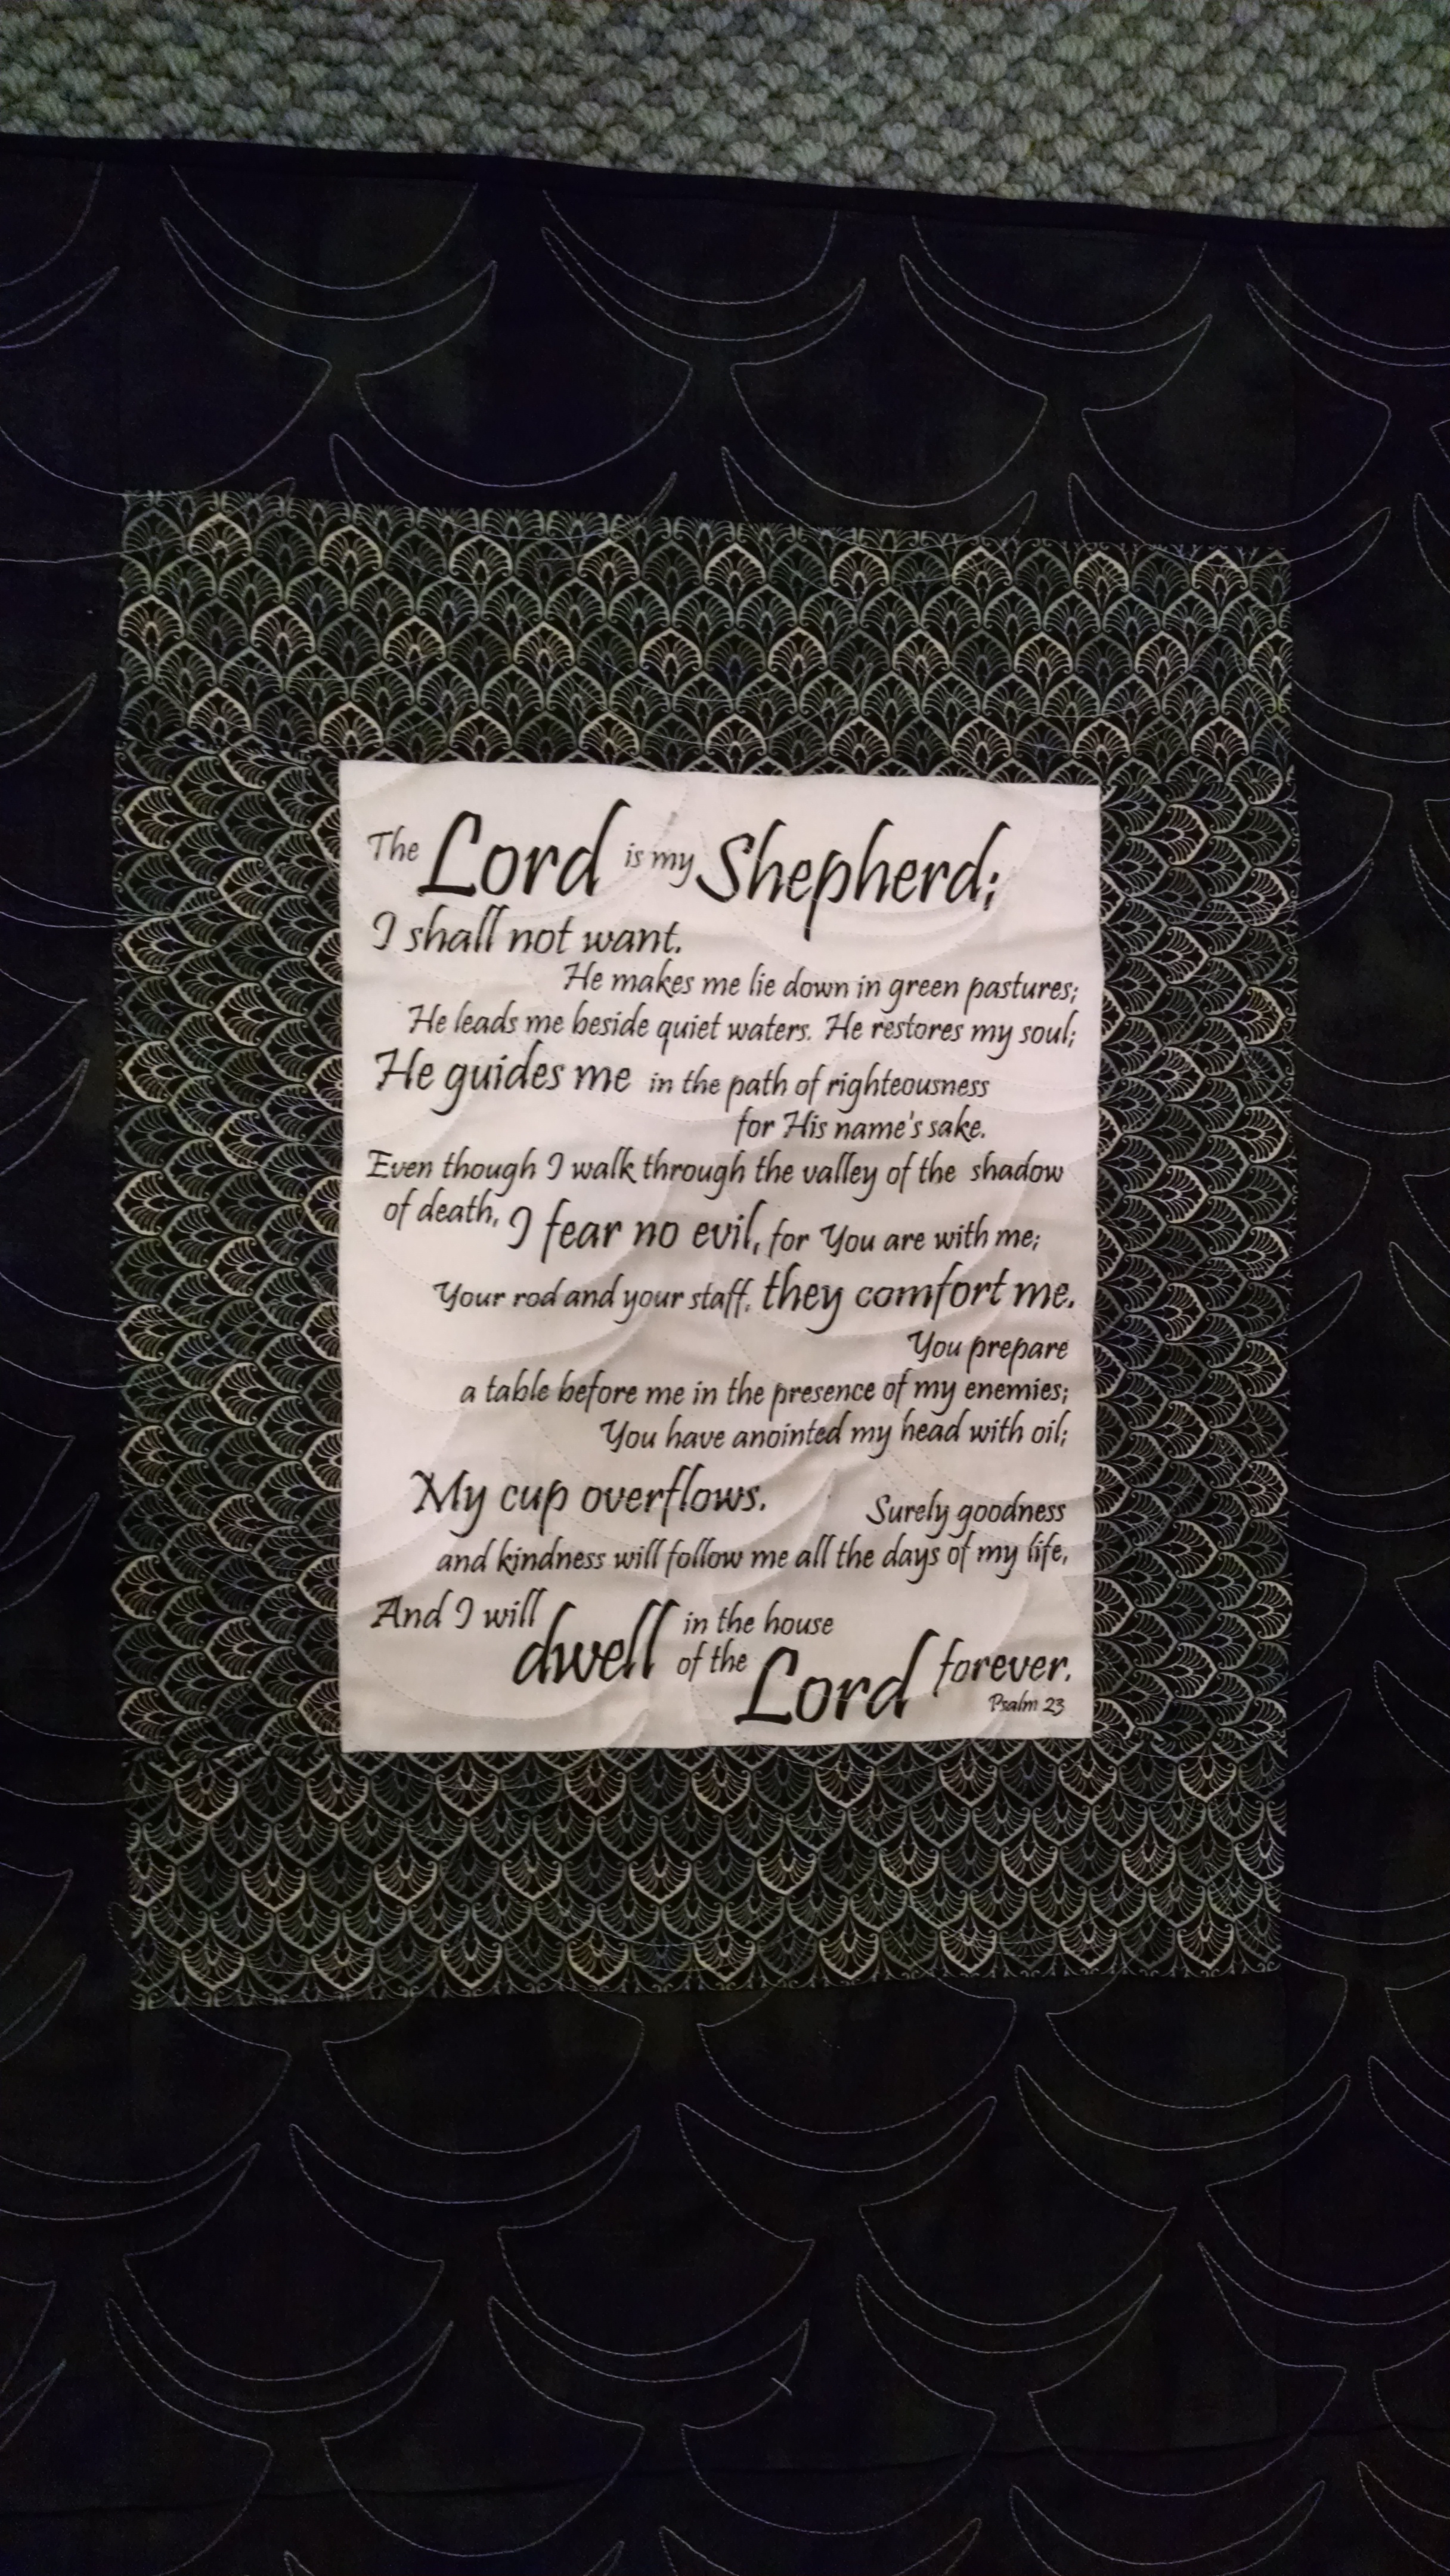 The Lord is my Shepherd;
I shall not want.
He makes me lie down in green pastures;
He leads me beside quiet waters. He restores my soul;
He guides me in the path of righteousness
for His name's sake.
Even though I walk through the valley of the shadow
of death, I fear no evil, for You are with me;
Your rod and your staff, they comfort me.
You prepare
a table before me in the presence of my enemies;
You have anointed my head with oil;
My cup overflows. Surely goodness
and kindness will follow me all the days of my life,
And I will dwell in the house
of the Lord forever.
Psalm 23